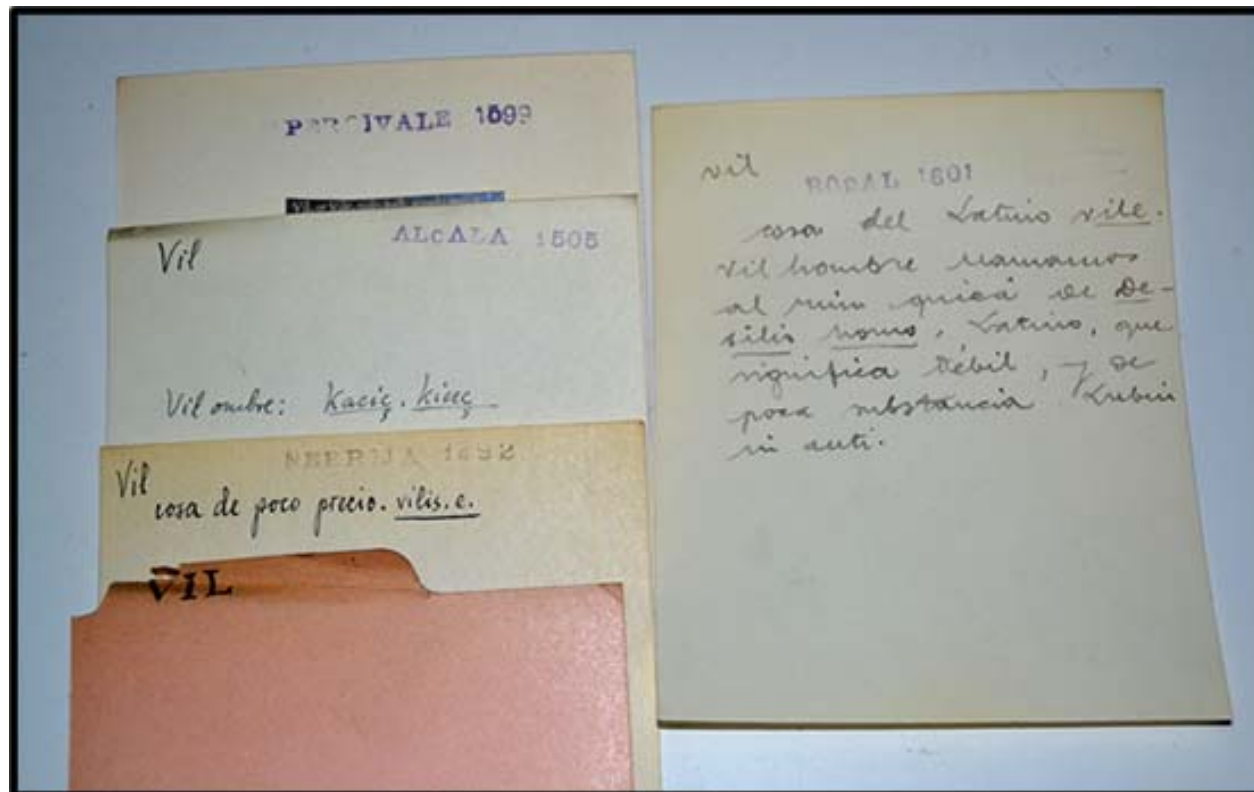 PERCIVALE 1599
Vil
ALCALA 1505
Vil ombre: Kaciç. Kiceç
NEBRIJA 1492
Vil
cosa de poco precio. vilis.e.
VIL
vil
ROSAL 1601
cosa del Latino vile.
Vil hombre llamamos
al ruin quiçá de De-
bilis homo, Latino, que
significa Débil, y de
poca substancia